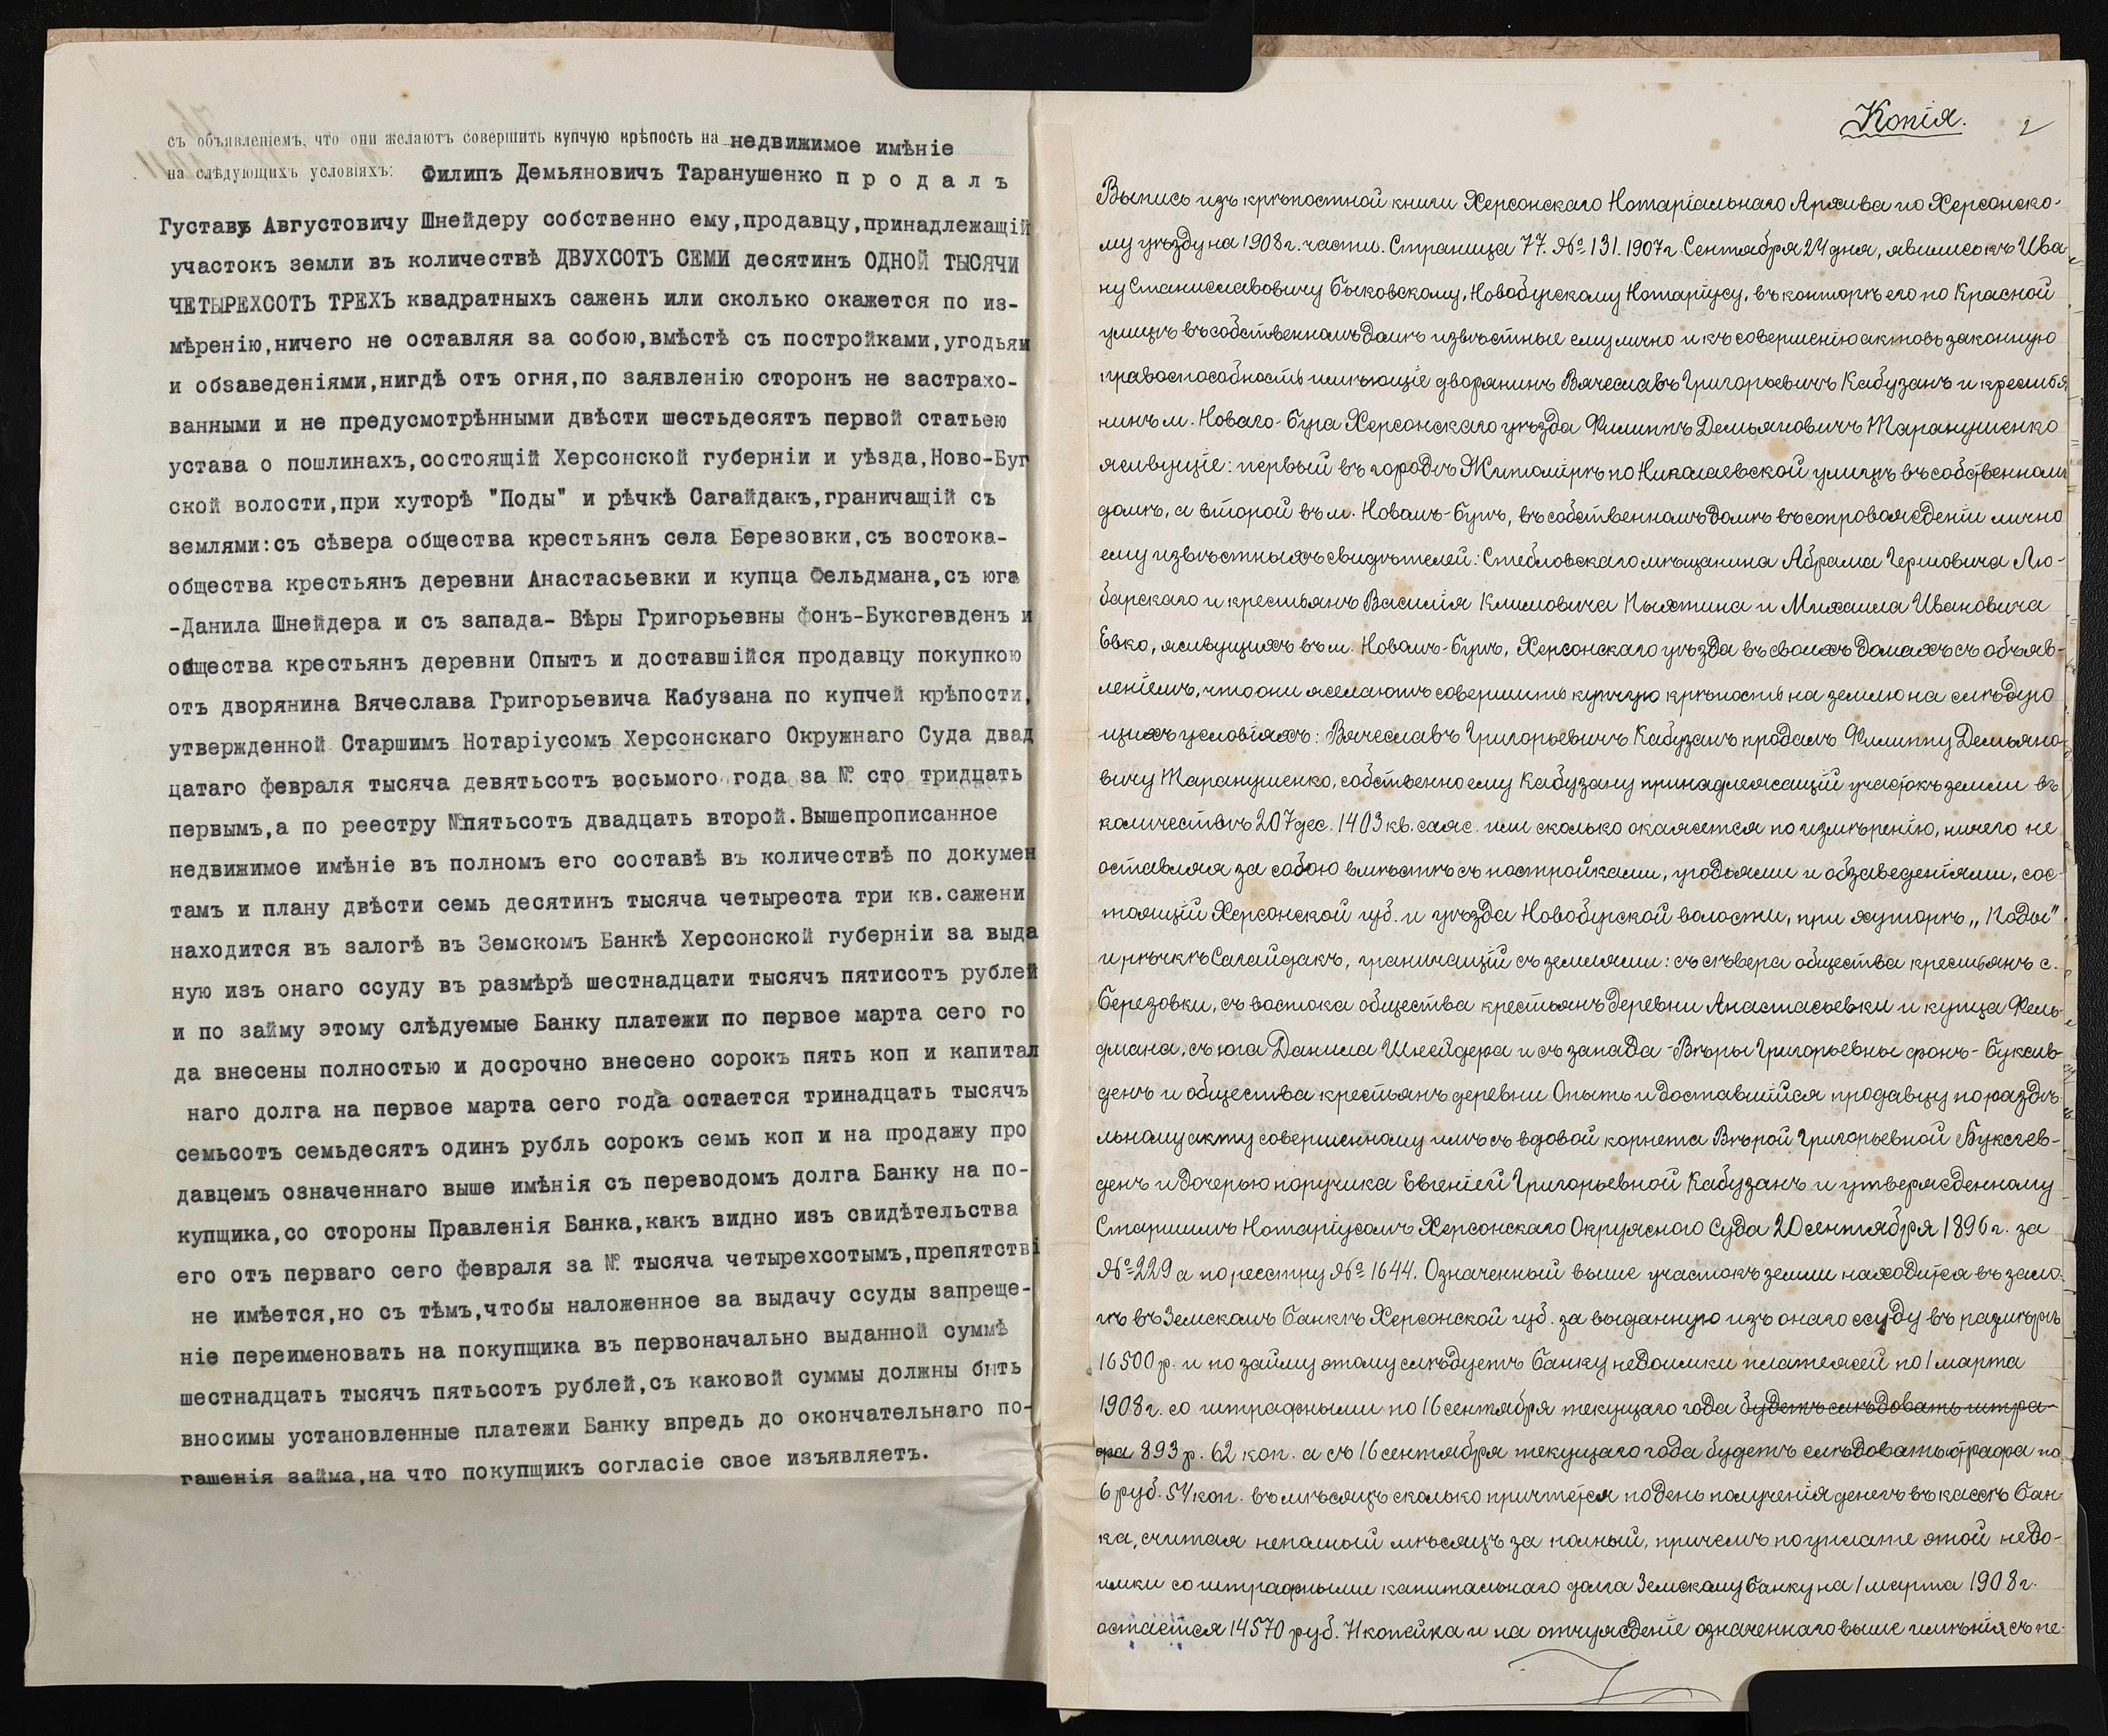 съ объявленіемъ, что они желаютъ совершить купчую крѣпость на недвижимое имѣніе
на слѣдующихъ условіяхъ: Филипъ Демьяновичъ Таранушенко п р о д а л ъ
Густаву Августовичу Шнейдеру собственно ему,продавцу,принадлежащій
участокъ земли въ количествѣ ДВУХСОТЪ СЕМИ десятинъ ОДНОЙ ТЫСЯЧИ
ЧЕТЫРЕХСОТЪ ТРЕХЪ квадратныхъ сажень или сколько окажется по из-
мѣренію,ничего не оставляя за собою,вмѣстѣ съ постройками,угодьями
и обзаведеніями,нигдѣ отъ огня,по заявленію сторонъ не застрахо-
ванными и не предусмотрѣнными двѣсти шестьдесятъ первой статьею
устава о пошлинахъ,состоящій Херсонской губерніи и уѣзда,Ново-Буг
ской волости,при хуторѣ "Поды" и рѣчкѣ Сагайдакъ,граничащій съ
землями:съ сѣвера общества крестьянъ села Березовки,съ востока-
общества крестьянъ деревни Анастасьевки и купца Фельдмана,съ юга
-Данила Шнейдера и съ запада- Вѣры Григорьевны фонъ-Буксгевденъ и
общества крестьянъ деревни Опытъ и доставшійся продавцу покупкою
отъ дворянина Вячеслава Григорьевича Кабузана по купчей крѣпости,
утвержденной Старшимъ Нотаріусомъ Херсонскаго Окружнаго Суда двад
цатаго февраля тысяча девятьсотъ восьмого года за № сто тридцать
первымъ,а по реестру №пятьсотъ двадцать второй.Вышепрописанное
недвижимое имѣніе въ полномъ его составѣ въ количествѣ по докумен
тамъ и плану двѣсти семь десятинъ тысяча четыреста три кв.сажени
находится въ залогѣ въ Земскомъ Банкѣ Херсонской губерніи за выда
ную изъ онаго ссуду въ размѣрѣ шестнадцати тысячъ пятисотъ рублей
и по займу этому слѣдуемые Банку платежи по первое марта сего го
да внесены полностью и досрочно внесено сорокъ пять коп и капитал
наго долга на первое марта сего года остается тринадцать тысячъ
семьсотъ семьдесятъ одинъ рубль сорокъ семь коп и на продажу про
давцемъ означеннаго выше имѣнія съ переводомъ долга Банку на по-
купщика,со стороны Правленія Банка,какъ видно изъ свидѣтельства
его отъ перваго сего февраля за № тысяча четырехсотымъ,препятстві
не имѣется,но съ тѣмъ,чтобы наложенное за выдачу ссуды запреще-
ніе переименовать на покупщика въ первоначально выданной суммѣ
шестнадцать тысячъ пятьсотъ рублей,съ каковой суммы должны быть
вносимы установленные платежи Банку впредь до окончательнаго по-
гашенія займа,на что покупщикъ согласіе свое изъявляетъ.
Копія.
2
Выпись изъ крѣпостной книги Херсонскаго Нотаріальнаго Архива по Херсонско-
му уѣзду на 1908 г. части. Страница 77. № 131. 1907 г. Сентября 24 дня, явились къ Ива-
ну Станиславовичу Быковскому, Новобугскому Нотаріусу, въ конторѣ его по Красной
улицѣ въ собственномъ домѣ извѣстные ему лично и къ совершенію актовъ законную
правоспособность имѣющіе дворянинъ Вячеславъ Григорьевичъ Кабузанъ и крестья
нинъ м. Новаго-Буга Херсонскаго уѣзда Филиппъ Демьяновичъ Таранушенко
живущіе: первый въ городѣ Житомірѣ по Николаевской улицѣ въ собственномъ
домѣ, а второй въ м. Новомъ-Бугѣ, въ собственномъ домѣ въ сопровожденіи лично
ему извѣстныхъ свидѣтелей: Стебловскаго мѣщанина Абрама Гершовича Лю-
барскаго и крестьянъ Василія Климовича Пыхтина и Михаила Ивановича
Евко, живущихъ въ м. Новомъ-Бугѣ, Херсонскаго уѣзда въ своихъ домахъ съ объяв-
леніемъ, что они желаютъ совершить купчую крѣпость на землю на слѣдую
щихъ условіяхъ: Вячеславъ Григорьевичъ Кабузанъ продалъ Филиппу Демьяно-
вичу Таранушенко, собственно ему Кабузану принадлежащій участокъ земли въ
количествѣ 207 дес. 1403 кв. саж. или сколько окажется по измѣренію, ничего не
оставляя за собою вмѣстѣ съ постройками, угодьями и обзаведеніями, сос-
тоящій Херсонской губ. и уѣзда Новобугской волости, при хуторѣ „Поды"
и рѣчкѣ Сагайдакъ, граничащій съ землями: съ сѣвера общества крестьянъ с.
Березовки, съ востока общества крестьянъ деревни Анастасьевки и купца Фель-
дмана, съ юга Данила Шнейдера и съ запада - Вѣры Григорьевны фонъ-Буксгев-
денъ и общества крестьянъ деревни Опытъ и доставшійся продавцу по раздѣ-
льному акту совершенному имъ съ вдовой корнета Вѣрой Григорьевной Буксгев-
денъ и дочерью поручика Евгеніей Григорьевной Кабузанъ и утвержденному
Старшимъ Нотаріусомъ Херсонскаго Окружного Суда 20 сентября 1896 г. за
№ 229 а по реестру № 1644. Означенный выше участокъ земли находится въ зало-
гѣ въ Земскомъ банкѣ Херсонской губ. за выданную изъ онаго ссуду въ размѣрѣ
16500 р. и по займу этому слѣдуетъ банку недоимки платежей по 1 марта
1908 г. со штрафными по 16 сентября текущаго года будетъ слѣдовать штра-
фа 893 р. 62 коп. а съ 16 сентября текущаго года будетъ слѣдовать штрафа по
6 руб. 54 коп. въ мѣсяцъ сколько причтется по день полученія денегъ въ кассѣ бан-
ка, считая неполный мѣсяцъ за полный, причемъ по уплате этой недо-
имки со штрафными капитальнаго долга Земскому банку на 1 марта 1908 г.
остается 14570 руб. 71 копейка и на отчужденіе означеннаго выше имѣнія съ пе-